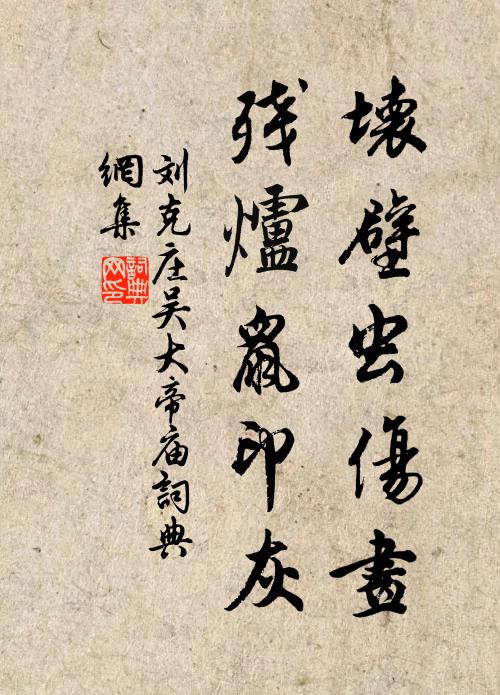 壊壁虫傷畫
残爐鼠印灰
刘克庄吴大帝庙詞典
網集
詞典網印